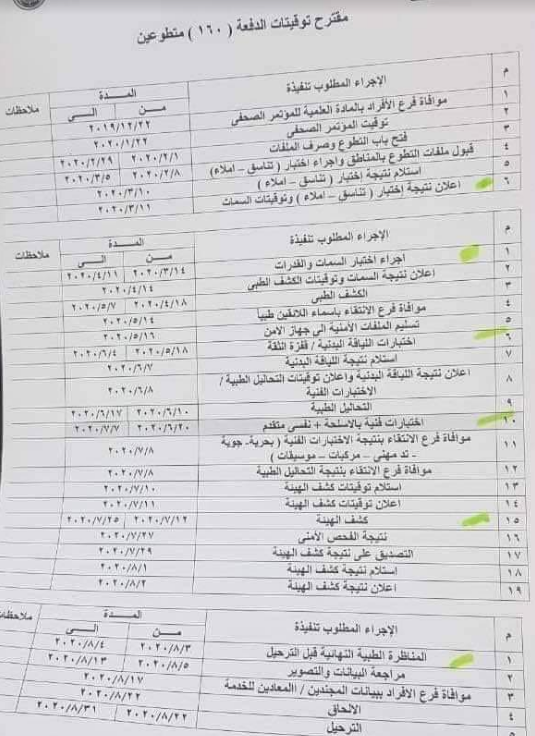 مقترح توقيتات الدفعة ( ١٦٠ ) متطوعين
م الإجراء المطلوب تنفيذة المدة ملاحظات
من الى
١ موافاة فرع الأفراد بالمادة العلمية للمؤتمر الصحفى ٢٠١٩/١٢/٢٢
٢ توقيت المؤتمر الصحفى ٢٠٢٠/١/٢٢
٣ فتح باب التطوع وصرف الملفات ٢٠٢٠/٢/١ ٢٠٢٠/٢/٢٩
٤ قبول ملفات التطوع بالمناطق واجراء اختبار ( تناسق – املاء ) ٢٠٢٠/٢/٨ ٢٠٢٠/٣/٥
٥ استلام نتيجة إختبار ( تناسق – املاء ) ٢٠٢٠/٣/١٠
٦ اعلان نتيجة إختبار ( تناسق – املاء ) وتوقيتات السمات ٢٠٢٠/٣/١١
م الإجراء المطلوب تنفيذة المدة ملاحظات
من الى
١ اجراء اختبار السمات والقدرات ٢٠٢٠/٣/١٤ ٢٠٢٠/٤/١١
٢ اعلان نتيجة السمات وتوقيتات الكشف الطبى ٢٠٢٠/٤/١٤
٣ الكشف الطبى ٢٠٢٠/٤/١٨ ٢٠٢٠/٥/٧
٤ موافاة فرع الانتقاء باسماء اللائقين طبياً ٢٠٢٠/٥/١٤
٥ تسليم الملفات الأمنية الى جهاز الامن ٢٠٢٠/٥/١٦
٦ اختبارات اللياقة البدنية / قفزة الثقة ٢٠٢٠/٥/١٨ ٢٠٢٠/٦/٤
٧ استلام نتيجة اللياقة البدنية ٢٠٢٠/٦/٧
٨ اعلان نتيجة اللياقة البدنية واعلان توقيتات التحاليل الطبية / ٢٠٢٠/٦/٨
الاختبارات الفنية
٩ التحاليل الطبية ٢٠٢٠/٦/١٠ ٢٠٢٠/٦/١٧
١٠ اختبارات فنية بالاسلحة + نفسى متقدم ٢٠٢٠/٦/٢٠ ٢٠٢٠/٧/٧
١١ موافاة فرع الانتقاء بنتيجة الاختبارات الفنية ( بحرية- جوية ٢٠٢٠/٧/٨
- تد مهنى – مركبات – موسيقات )
١٢ موافاة فرع الانتقاء بنتيجة التحاليل الطبية ٢٠٢٠/٧/٨
١٣ استلام توقيتات كشف الهيئة ٢٠٢٠/٧/١٠
١٤ اعلان توقيتات كشف الهيئة ٢٠٢٠/٧/١١
١٥ كشف الهيئة ٢٠٢٠/٧/١٢ ٢٠٢٠/٧/٢٥
١٦ نتيجة الفحص الأمنى ٢٠٢٠/٧/٢٧
١٧ التصديق على نتيجة كشف الهيئة ٢٠٢٠/٧/٢٩
١٨ استلام نتيجة كشف الهيئة ٢٠٢٠/٨/١
١٩ اعلان نتيجة كشف الهيئة ٢٠٢٠/٨/٢
م الإجراء المطلوب تنفيذة المدة ملاحظات
من الى
١ المناظرة الطبية النهائية قبل الترحيل ٢٠٢٠/٨/٣ ٢٠٢٠/٨/٤
٢ مراجعة البيانات والتصوير ٢٠٢٠/٨/٥ ٢٠٢٠/٨/١٣
٣ موافاة فرع الافراد ببيانات المجندين / االمعادين للخدمة ٢٠٢٠/٨/١٧
٤ الالحاق ٢٠٢٠/٨/٢٢
٥ الترحيل ٢٠٢٠/٨/٢٢ ٢٠٢٠/٨/٣١